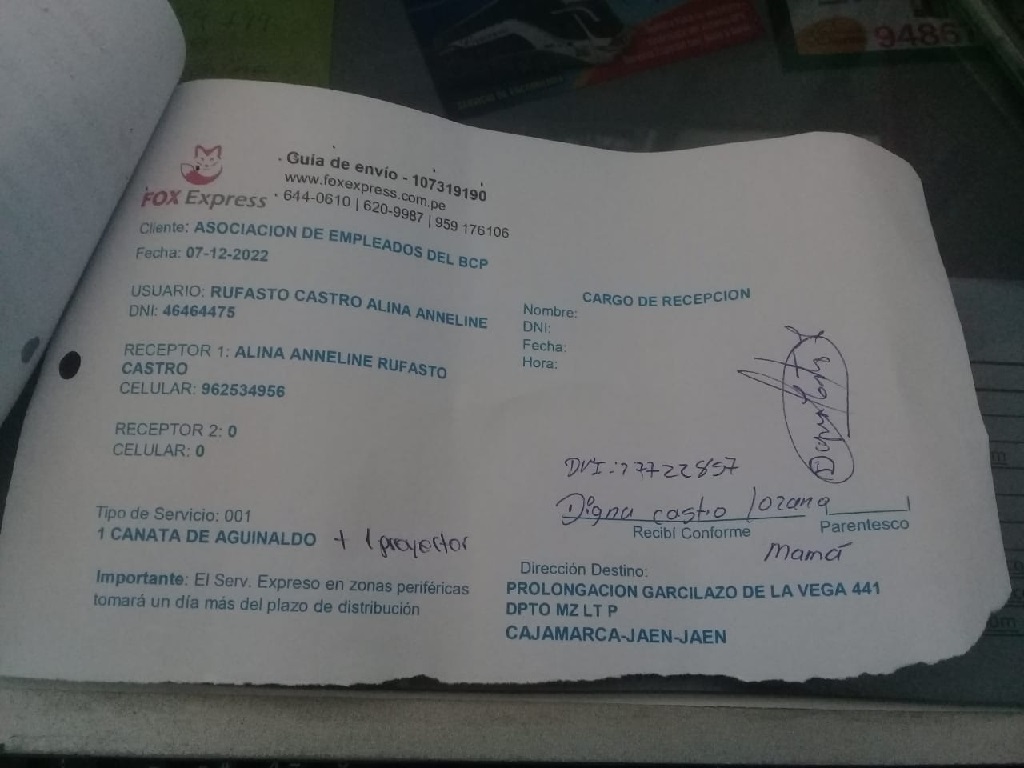 94867
FOX Express
· Guia de envío - 107319190
www.foxexpress.com.pe
· 644-0610 | 620-9987 | 959 176106
Cliente: ASOCIACION DE EMPLEADOS DEL BCP
Fecha: 07-12-2022
USUARIO: RUFASTO CASTRO ALINA ANNELINE
DNI: 46464475
RECEPTOR 1: ALINA ANNELINE RUFASTO
CASTRO
CELULAR: 962534956
RECEPTOR 2: 0
CELULAR: 0
Tipo de Servicio: 001
1 CANATA DE AGUINALDO + 1 proyector
Importante: El Serv. Expreso en zonas periféricas
tomará un día más del plazo de distribución
CARGO DE RECEPCION
Nombre:
DNI:
Fecha:
Hora:
DNI: 27722857
Digna castro lozana
Recibí Conforme
Parentesco
Mamá
Dirección Destino:
PROLONGACION GARCILAZO DE LA VEGA 441
DPTO MZ LT P
CAJAMARCA-JAEN-JAEN